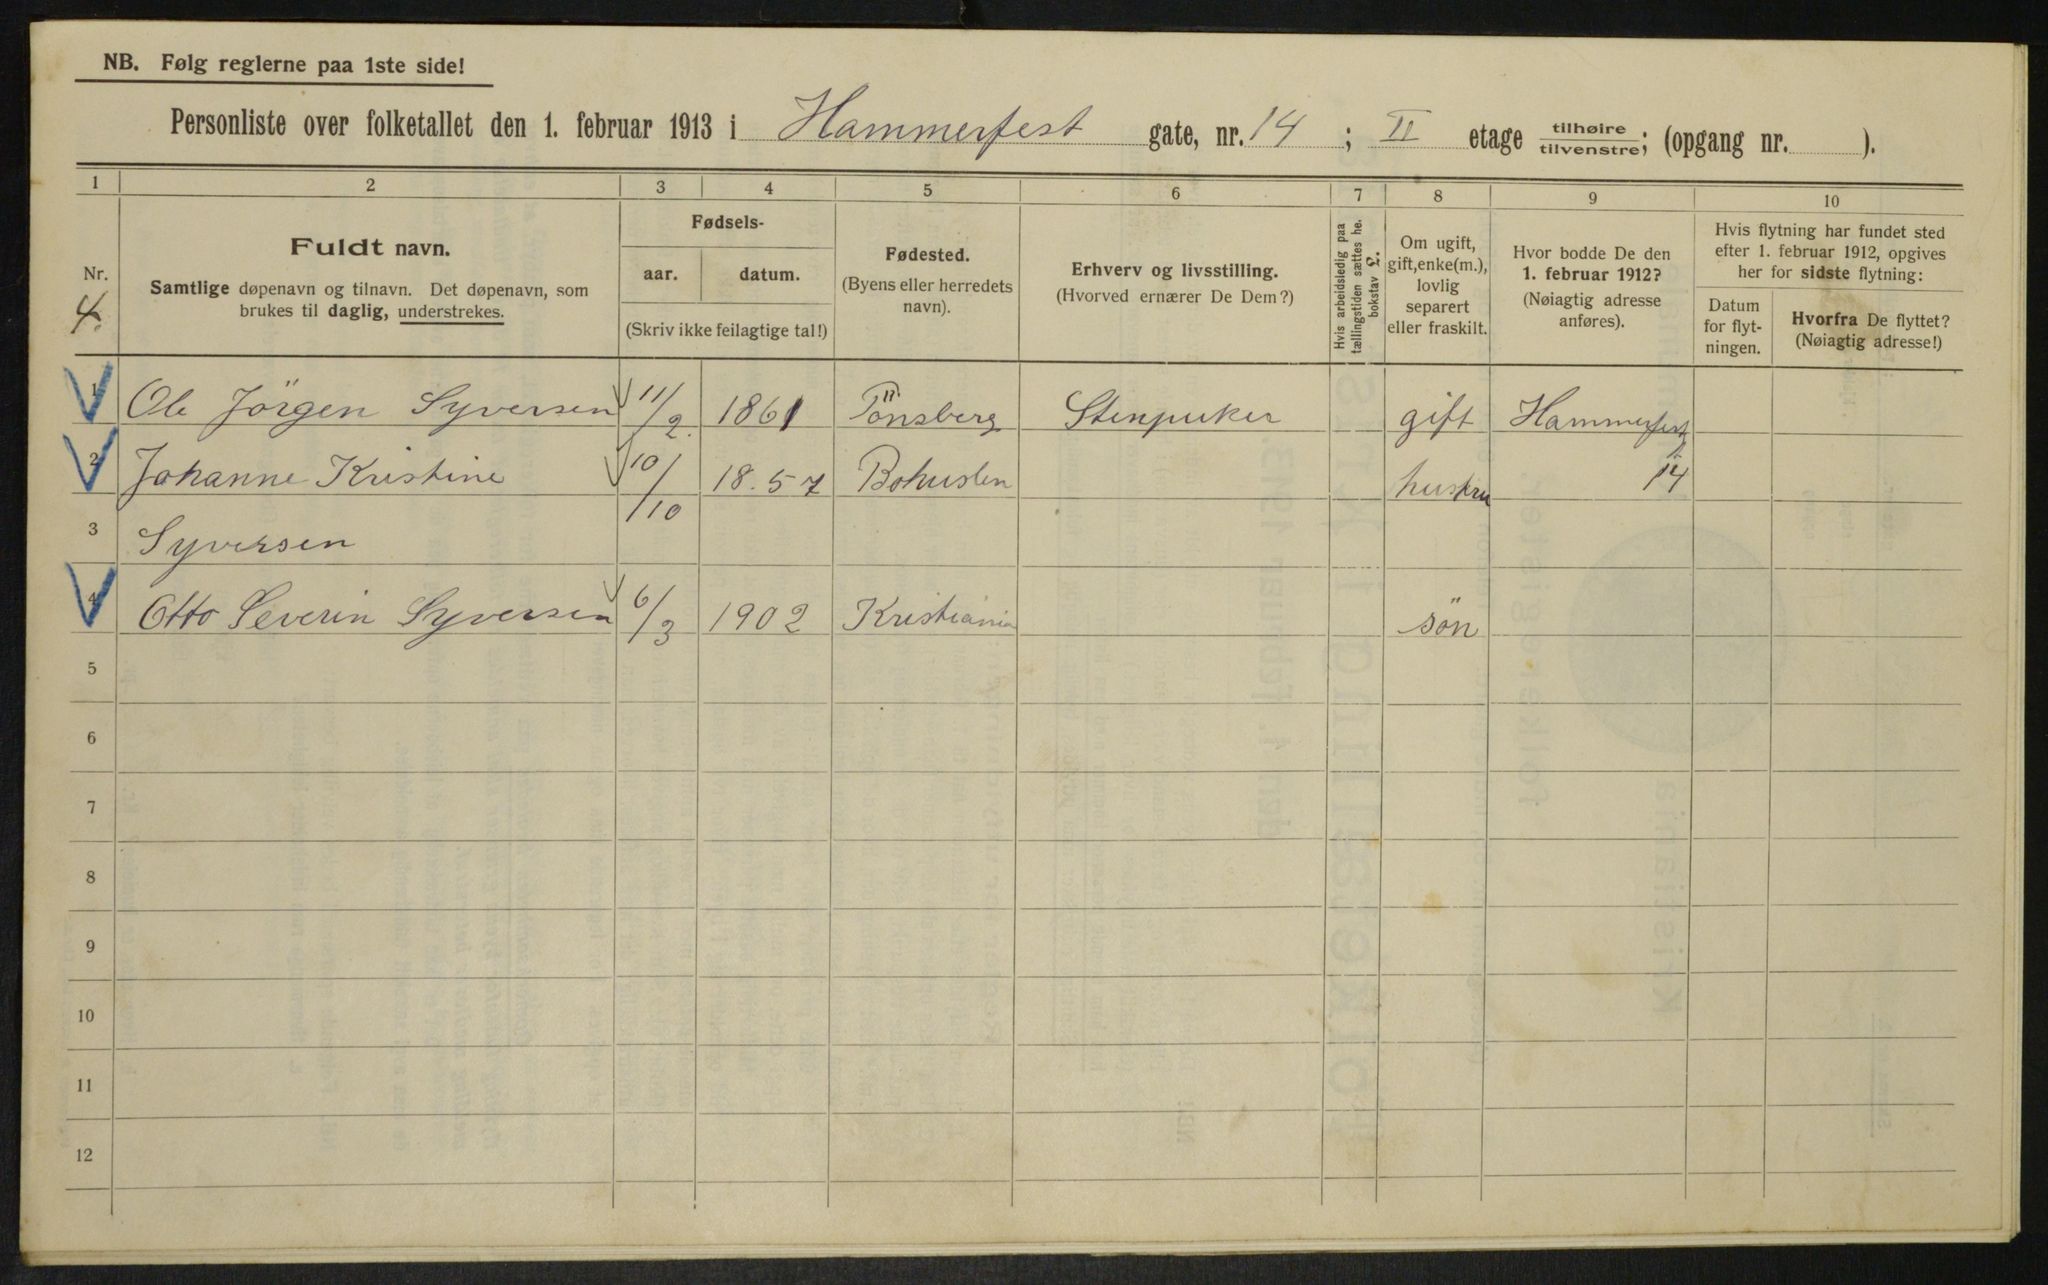 NB. Følg reglerne paa 1ste side!
Personliste over folketallet den 1. februar 1913 i Hammerfest gate, nr. 14 ; II etage tilhøire/tilvenstre; (opgang nr. ).
1 2 3 4 5 6 7 8 9 10
Nr.
4.
Fuldt navn.
Samtlige døpenavn og tilnavn. Det døpenavn, som
brukes til daglig, understrekes.
Fødsels-
aar. datum.
(Skriv ikke feilagtige tal!)
Fødested.
(Byens eller herredets
navn).
Erhverv og livsstilling.
(Hvorved ernærer De Dem?)
Hvis arbeidsledig paa
tællingstiden sættes he.
bokstav L.
Om ugift,
gift, enke(m.),
lovlig
separert
eller fraskilt.
Hvor bodde De den
1. februar 1912?
(Nøiagtig adresse
anføres).
Hvis flytning har fundet sted
efter 1. februar 1912, opgives
her for sidste flytning:
Datum
for flyt-
ningen.
Hvorfra De flyttet?
(Nøiagtig adresse!)
1 Ole Jörgen Syversen 11/2. 1861 Tönsberg Stenpuker gift Hammerfest
2 Johanne Kristine 10/10 18.57 Bohuslen hustru 14
3 Syversen
4 Otto Severin Syversen 6/3 1902 Kristiania sön
5
6
7
8
9
10
11
12